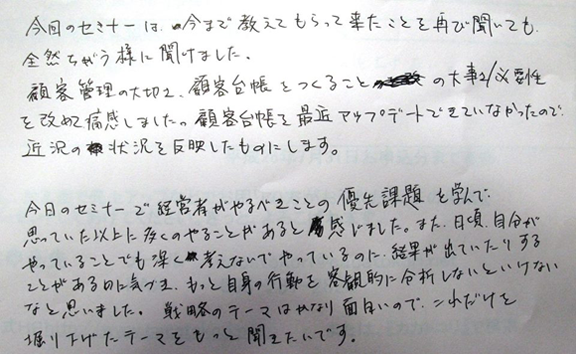 今回のセミナーは、今まで教えてもらって来たことを再び聞いても、
全然ちがう様に聞けました。
顧客管理の大切さ、顧客台帳をつくること の大事さ/必要性
を改めて痛感しました。顧客台帳を最近アップデートできていなかったので、
近況の状況を反映したものにします。
今日のセミナーで経営者がやるべきことの優先課題を学んで、
思っていた以上に多くのやることがあると感じました。また、日頃、自分が
やっていることでも深く考えないでやっているのに、結果が出ていたりする
ことがあるのに気づき、もっと自身の行動を客観的に分析しないといけない
なと思いました。戦略のテーマはかなり面白いので、これだけを
掘り下げたテーマをもっと聞きたいです。